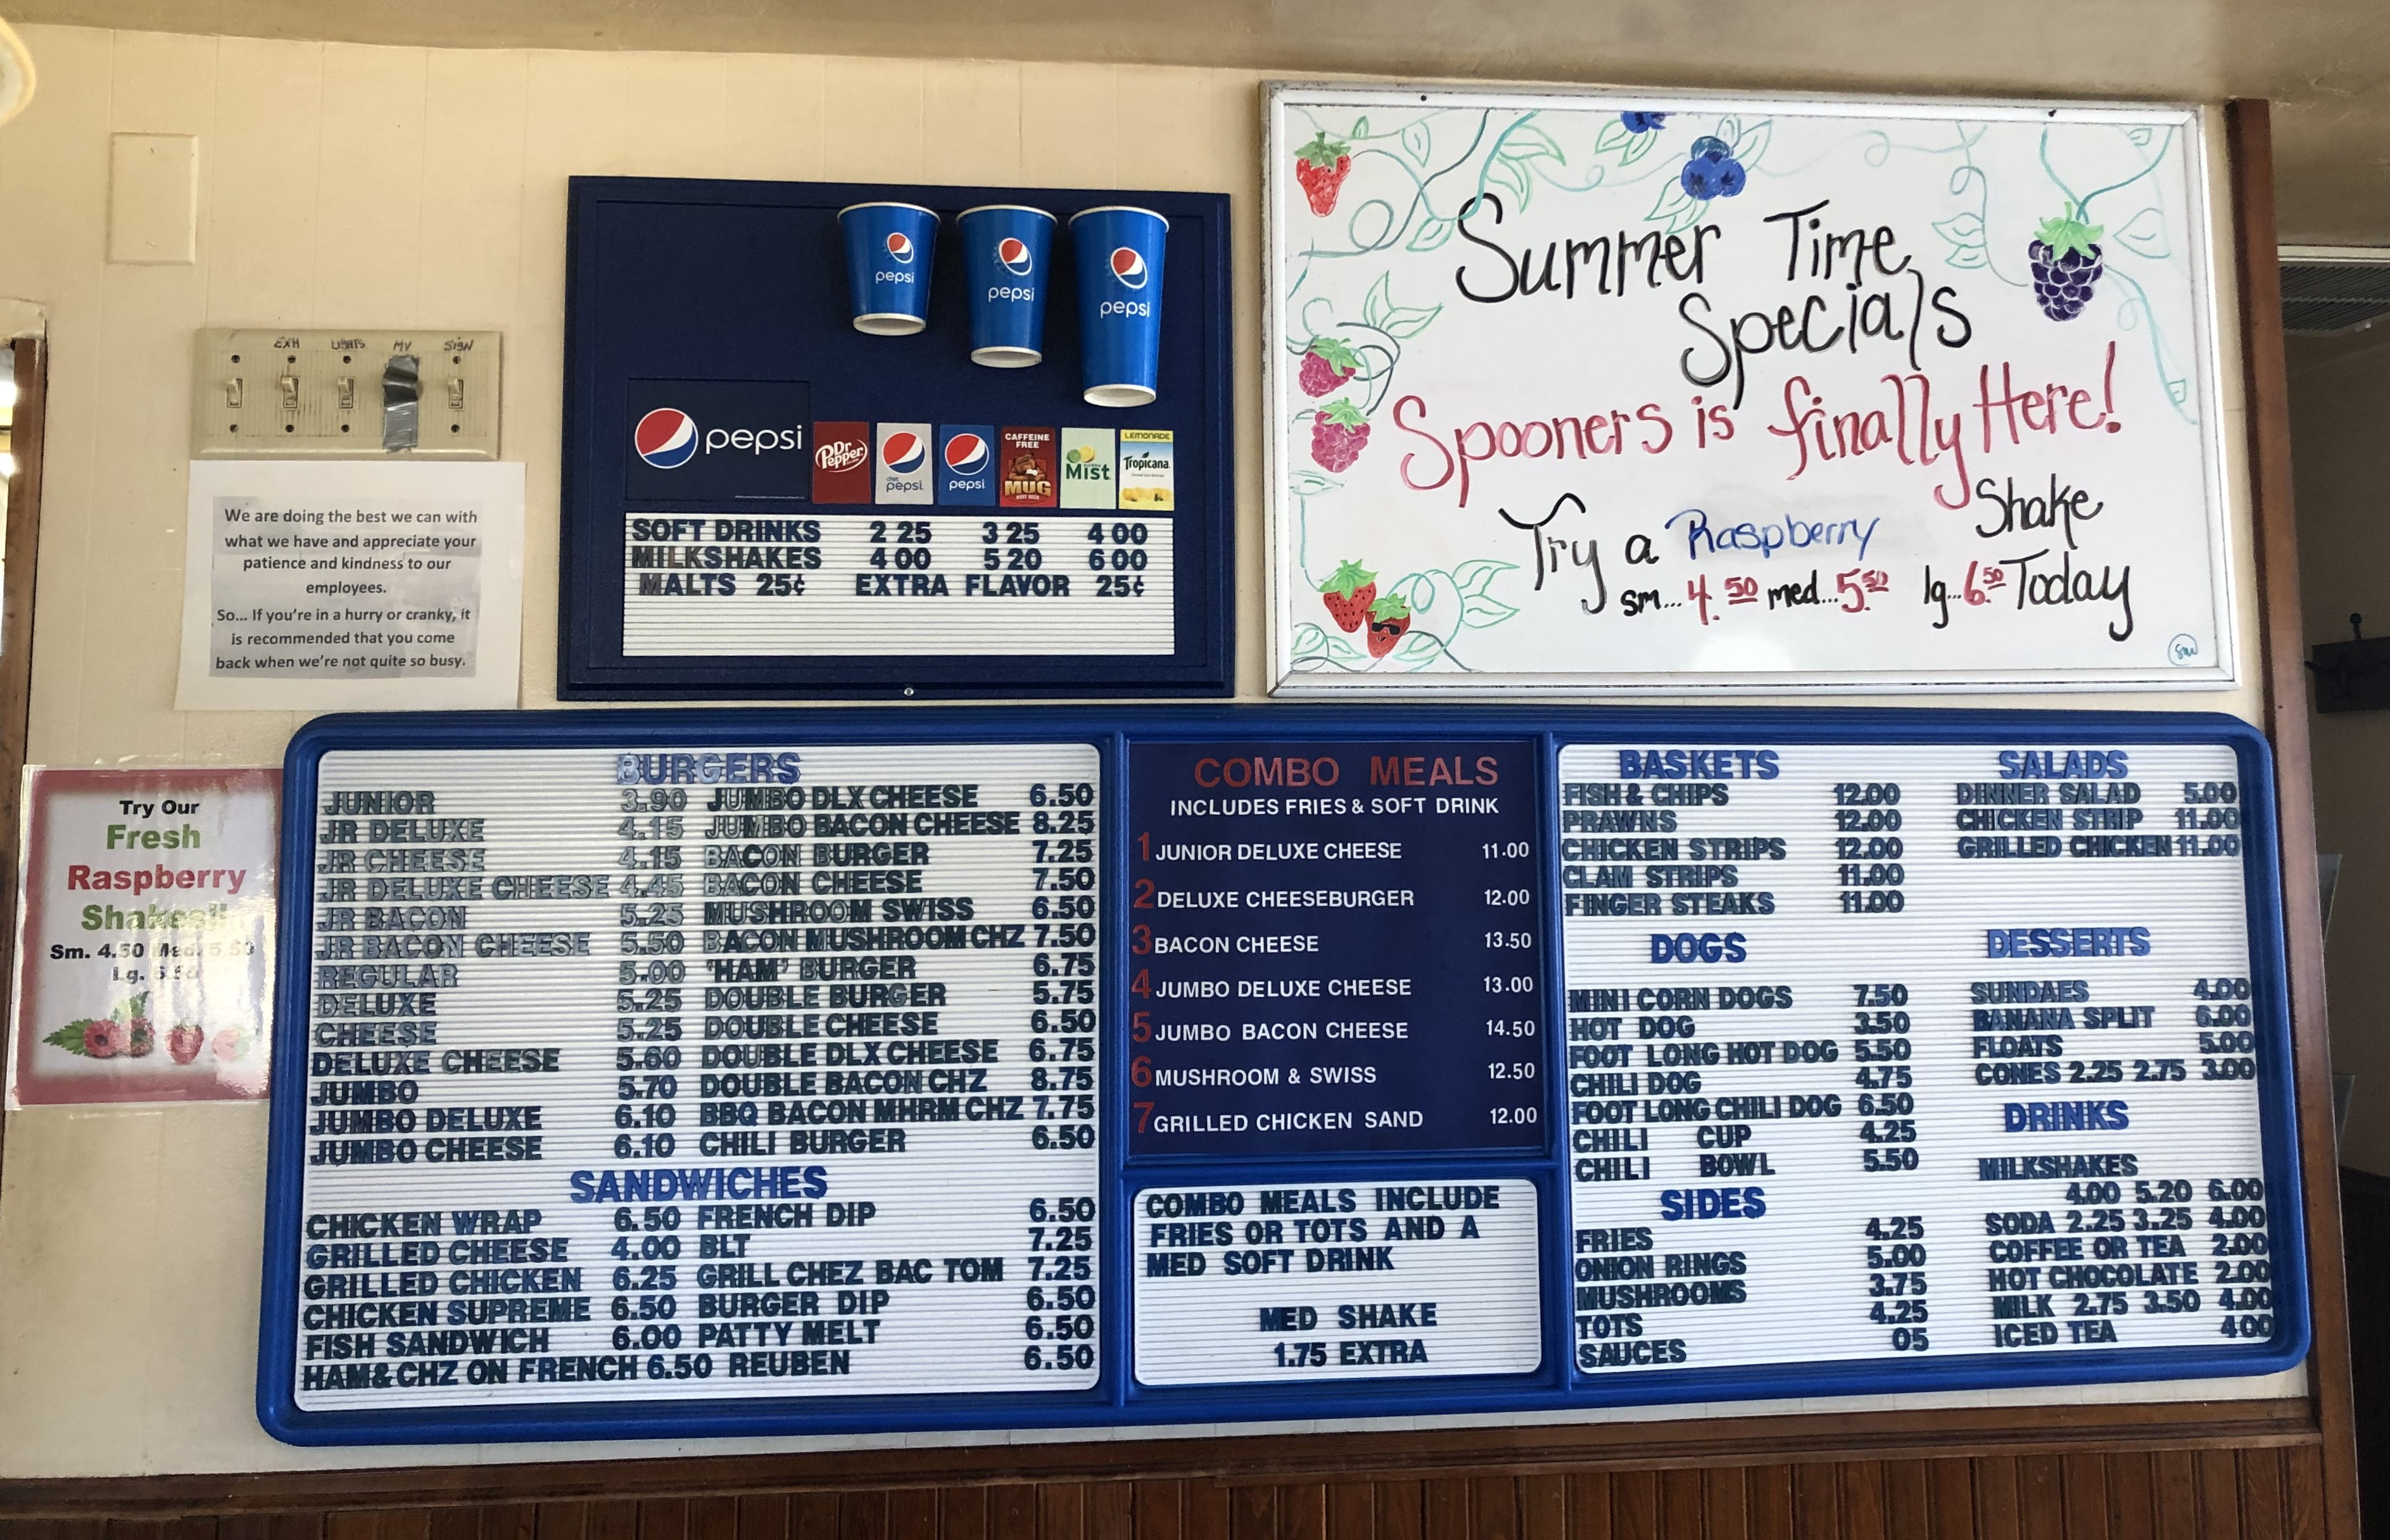 EXH LIGHTS MV SIGN
We are doing the best we can with
what we have and appreciate your
patience and kindness to our
employees.
So... If you're in a hurry or cranky, it
is recommended that you come
back when we're not quite so busy.
Try Our
Fresh
Raspberry
Shakes!!
Sm. 4.50 Med. 5.50
Lg. 6.50
pepsi
pepsi
pepsi
pepsi
Dr Pepper
diet pepsi
pepsi
CAFFEINE FREE
MUG
ROOT BEER
Mist
LEMONADE
Tropicana
SOFT DRINKS 2 25 3 25 4 00
MILKSHAKES 4 00 5 20 6 00
MALTS 25¢ EXTRA FLAVOR 25¢
Summer Time
Specials
Spooners is finally Here!
Try a Raspberry Shake
sm... 4.50 med... 5.50 lg... 6.50 Today
SW
BURGERS
JUNIOR 3.90
JR DELUXE 4.15
JR CHEESE 4.15
JR DELUXE CHEESE 4.45
JR BACON 5.25
JR BACON CHEESE 5.50
REGULAR 5.00
DELUXE 5.25
CHEESE 5.25
DELUXE CHEESE 5.60
JUMBO 5.70
JUMBO DELUXE 6.10
JUMBO CHEESE 6.10
JUMBO DLX CHEESE 6.50
JUMBO BACON CHEESE 8.25
BACON BURGER 7.25
BACON CHEESE 7.50
MUSHROOM SWISS 6.50
BACON MUSHROOM CHZ 7.50
'HAM' BURGER 6.75
DOUBLE BURGER 5.75
DOUBLE CHEESE 6.50
DOUBLE DLX CHEESE 6.75
DOUBLE BACON CHZ 8.75
BBQ BACON MHRM CHZ 7.75
CHILI BURGER 6.50
SANDWICHES
CHICKEN WRAP 6.50
GRILLED CHEESE 4.00
GRILLED CHICKEN 6.25
CHICKEN SUPREME 6.50
FISH SANDWICH 6.00
HAM & CHZ ON FRENCH 6.50
FRENCH DIP 6.50
BLT 7.25
GRILL CHEZ BAC TOM 7.25
BURGER DIP 6.50
PATTY MELT 6.50
REUBEN 6.50
COMBO MEALS
INCLUDES FRIES & SOFT DRINK
1 JUNIOR DELUXE CHEESE 11.00
2 DELUXE CHEESEBURGER 12.00
3 BACON CHEESE 13.50
4 JUMBO DELUXE CHEESE 13.00
5 JUMBO BACON CHEESE 14.50
6 MUSHROOM & SWISS 12.50
7 GRILLED CHICKEN SAND 12.00
COMBO MEALS INCLUDE
FRIES OR TOTS AND A
MED SOFT DRINK
MED SHAKE
1.75 EXTRA
BASKETS
FISH & CHIPS 12.00
PRAWNS 12.00
CHICKEN STRIPS 12.00
CLAM STRIPS 11.00
FINGER STEAKS 11.00
DOGS
MINI CORN DOGS 7.50
HOT DOG 3.50
FOOT LONG HOT DOG 5.50
CHILI DOG 4.75
FOOT LONG CHILI DOG 6.50
CHILI CUP 4.25
CHILI BOWL 5.50
SIDES
FRIES 4.25
ONION RINGS 5.00
MUSHROOMS 3.75
TOTS 4.25
SAUCES 05
SALADS
DINNER SALAD 5.00
CHICKEN STRIP 11.00
GRILLED CHICKEN 11.00
DESSERTS
SUNDAES 4.00
BANANA SPLIT 6.00
FLOATS 5.00
CONES 2.25 2.75 3.00
DRINKS
MILKSHAKES
4.00 5.20 6.00
SODA 2.25 3.25 4.00
COFFEE OR TEA 2.00
HOT CHOCOLATE 2.00
MILK 2.75 3.50 4.00
ICED TEA 4 00